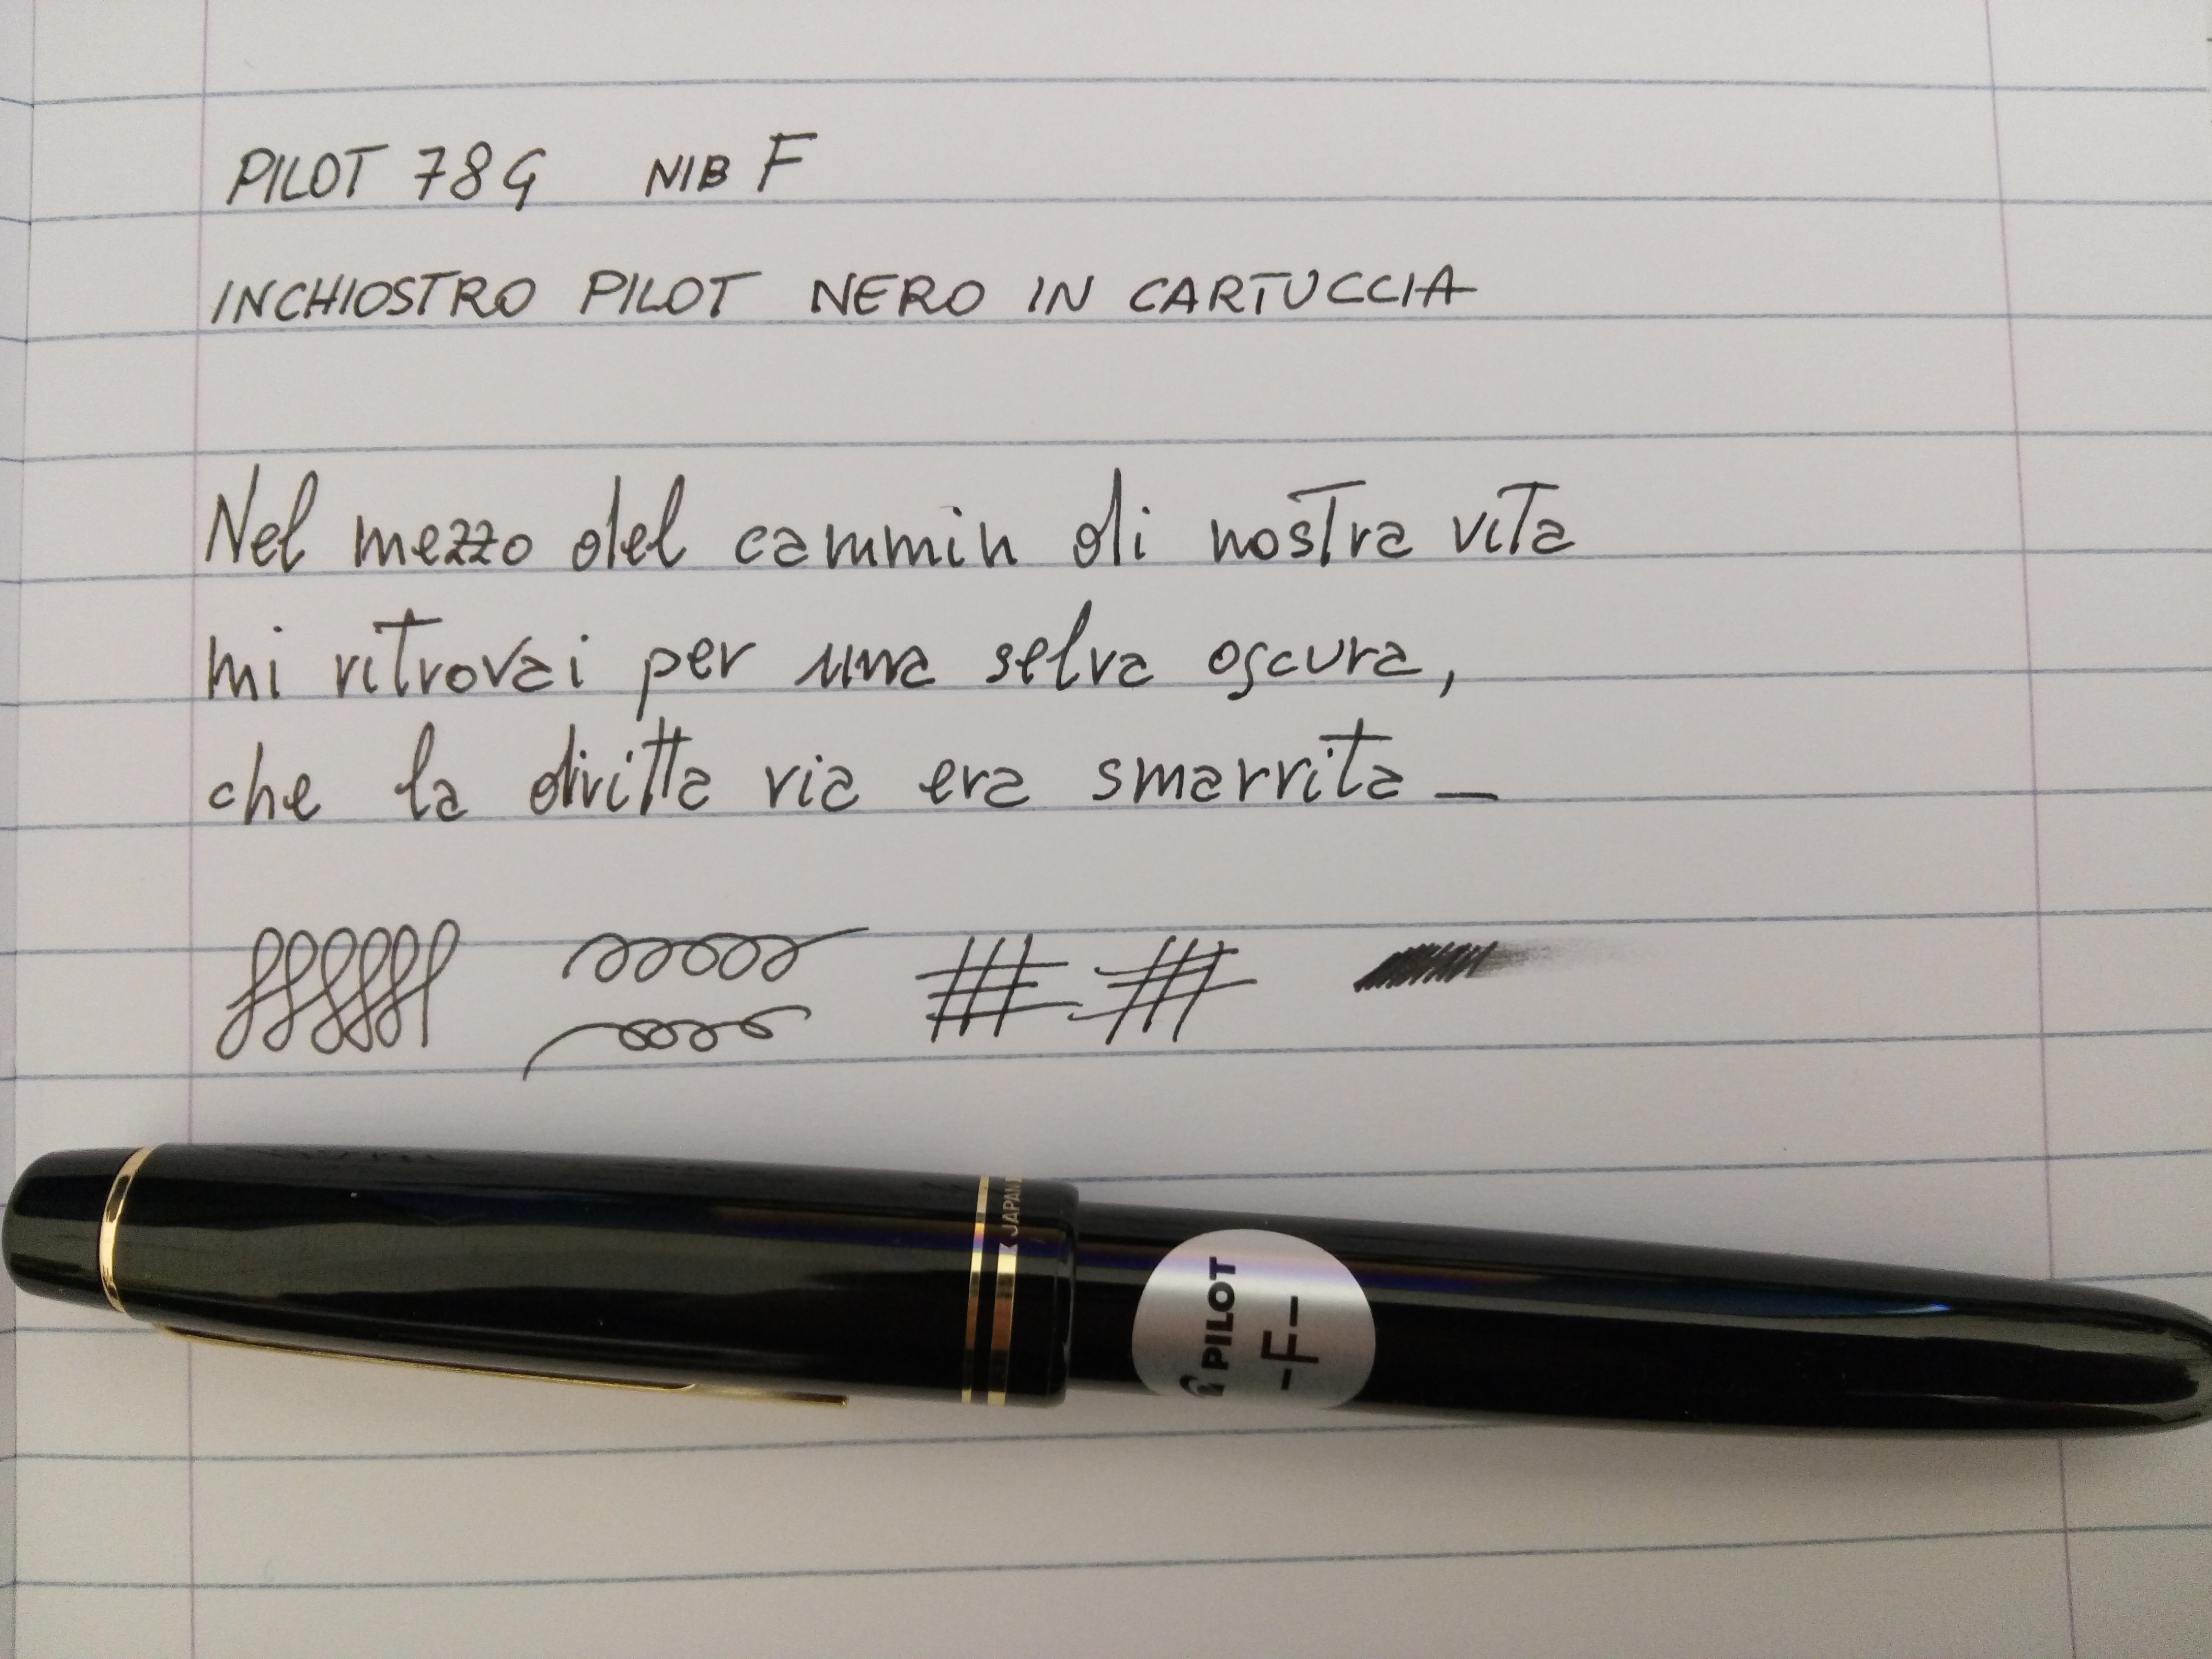 PILOT 78G NIB F
INCHIOSTRO PILOT NERO IN CARTUCCIA
Nel mezzo del cammin di nostra vita
mi ritrovai per una selva oscura,
che la diritta via era smarrita —
JAPAN
PILOT
-F-